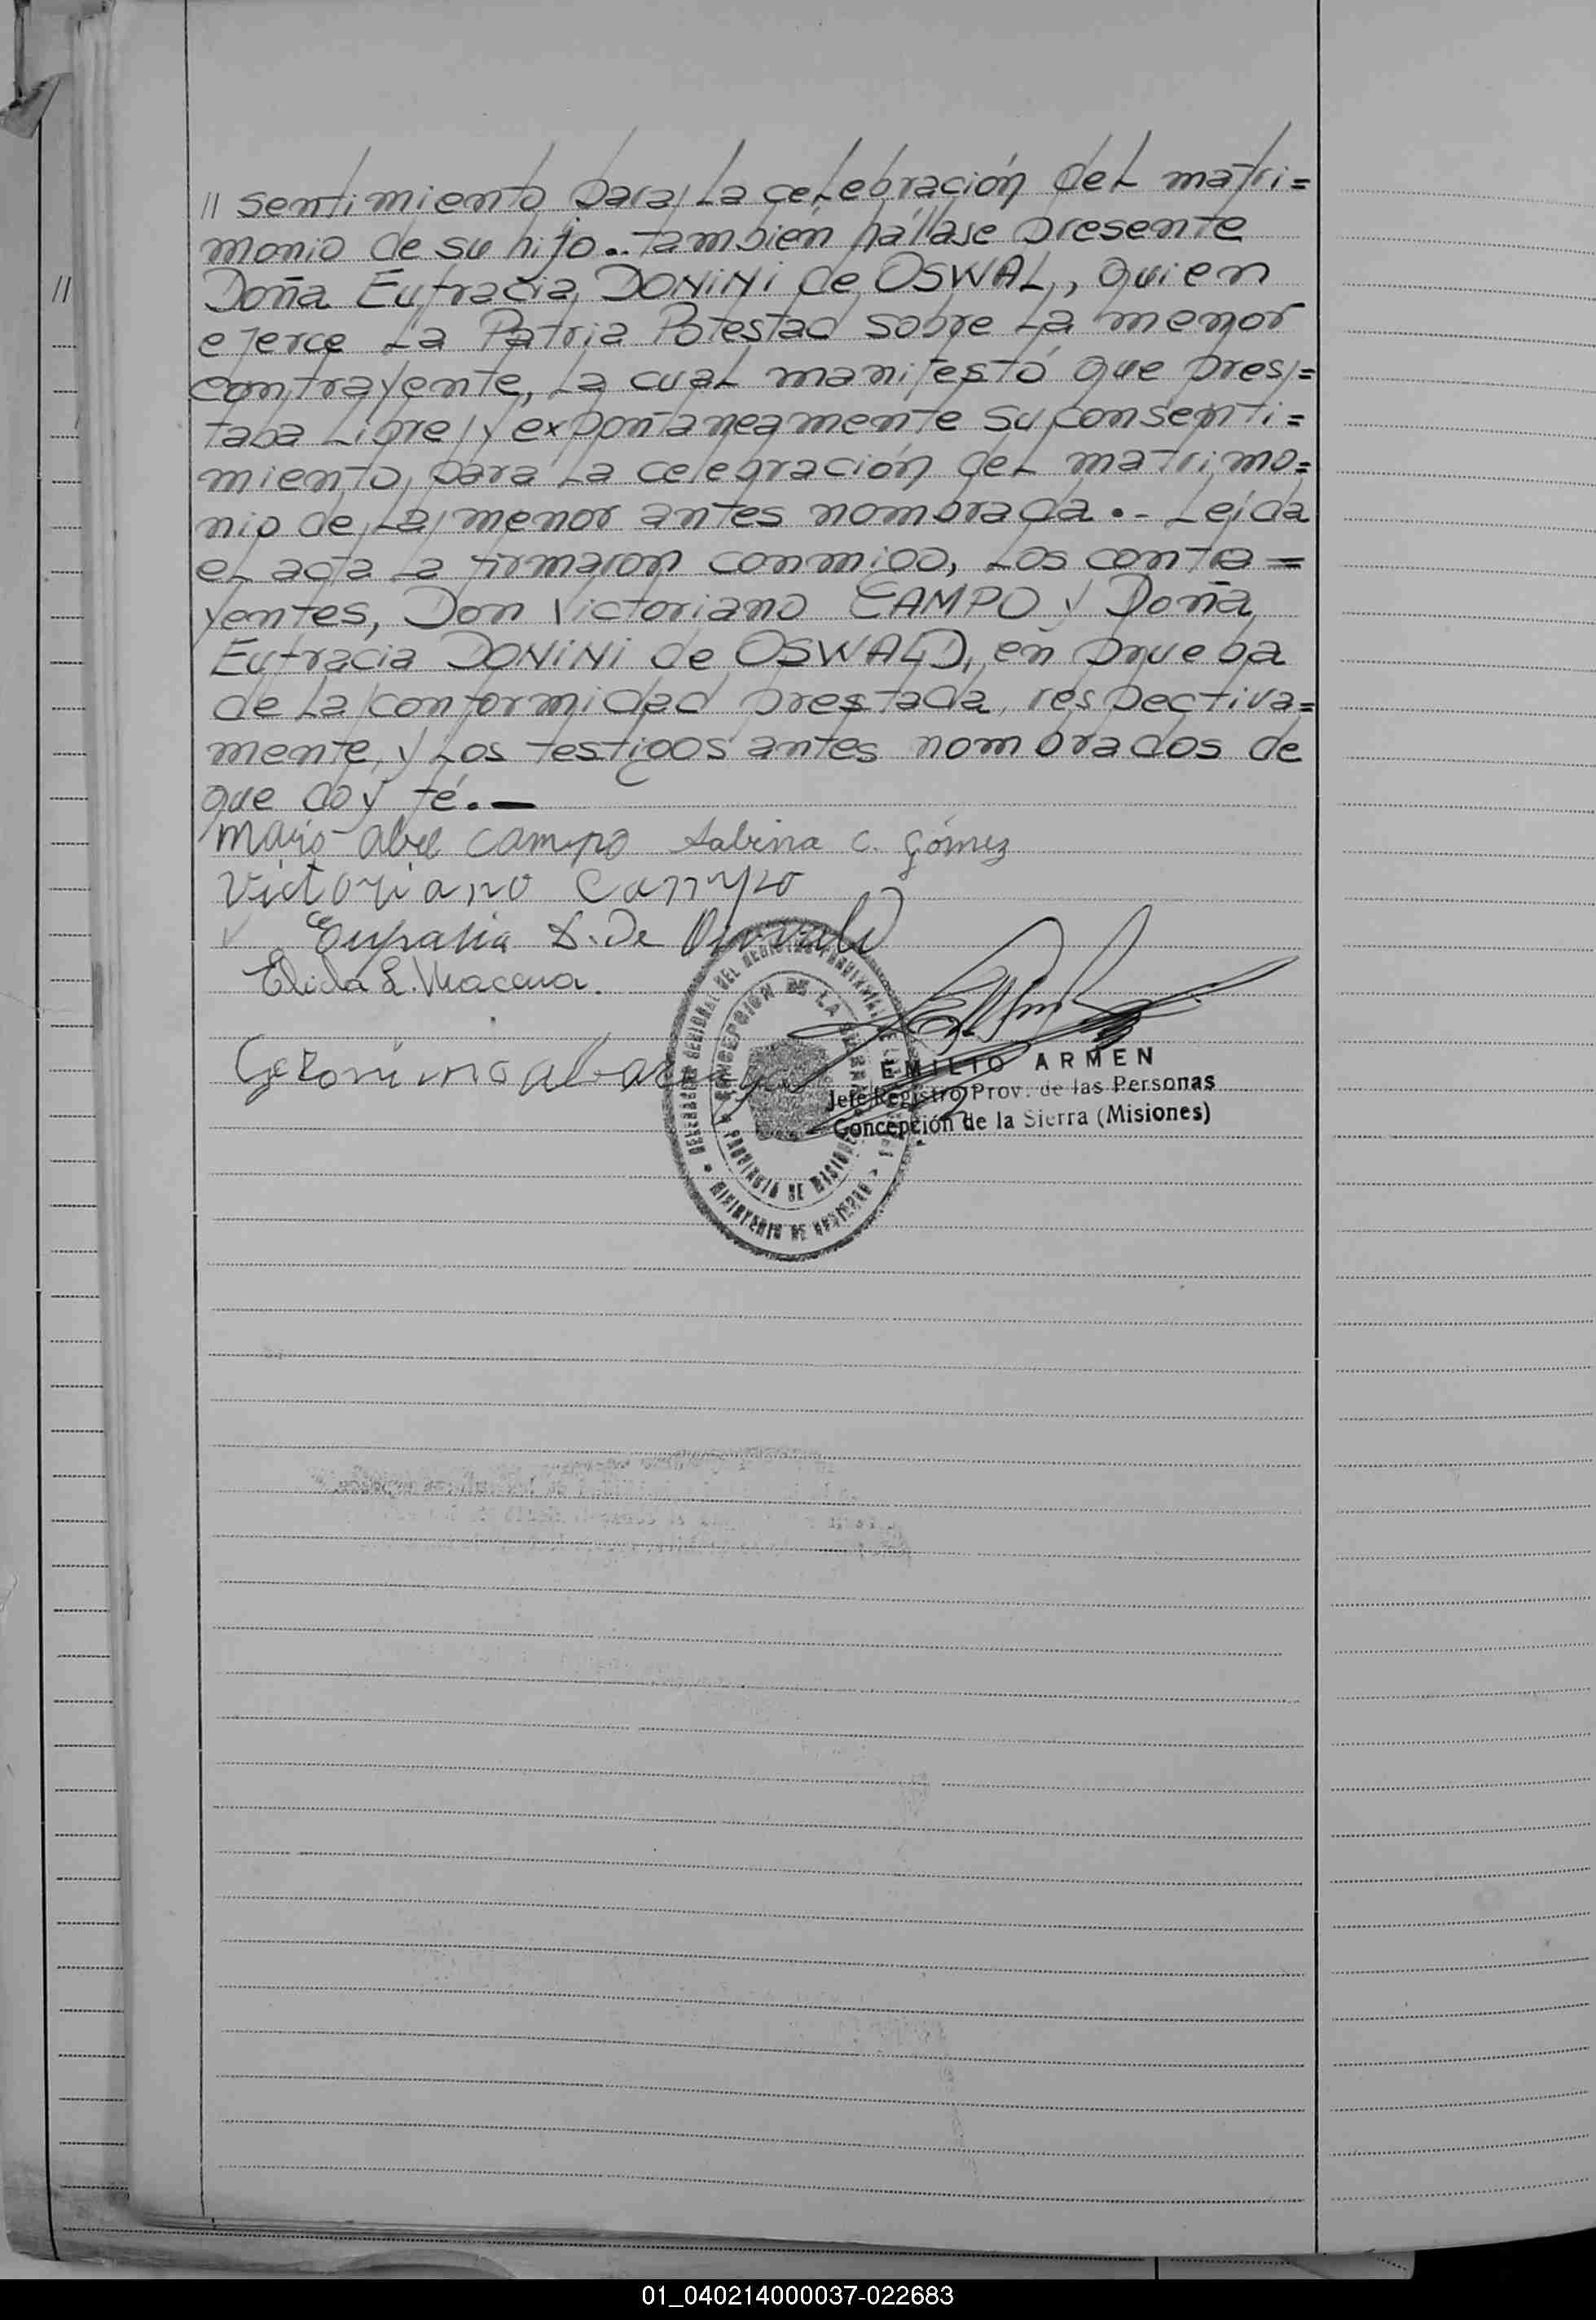 // sentimiento para la celebración del matri=
monio de su hijo.. también hállase presente
//
Doña Eufracia DONINI de OSWAL, quien
ejerce la Patria Potestad sobre la menor
contrayente, la cual manifestó que pres=
taba libre y expontaneamente su consenti=
miento, para la celebración del matrimo=
nio de la menor antes nombrada.- Leída
el acta la firmaron conmigo, los contra=
yentes, Don Victoriano CAMPO y Doña
Eufracia DONINI de OSWALD, en prueba
de la conformidad prestada, respectiva=
mente, y los testigos antes nombrados de
que doy fé.-
Mario Abel Campo Sabina C. Gómez
Victoriano Campo
Eufrasia D. De Oswald
Elida L.
Geronimo
DEL REGISTRO PROVINCIAL DE LAS
CONCEPCION DE LA SIERRA
PROVINCIA DE MISIONES
MINISTERIO DE GOBIERNO
EMILIO ARMEN
Jefe Registro Prov. de las Personas
Concepción de la Sierra (Misiones)
01_040214000037-022683